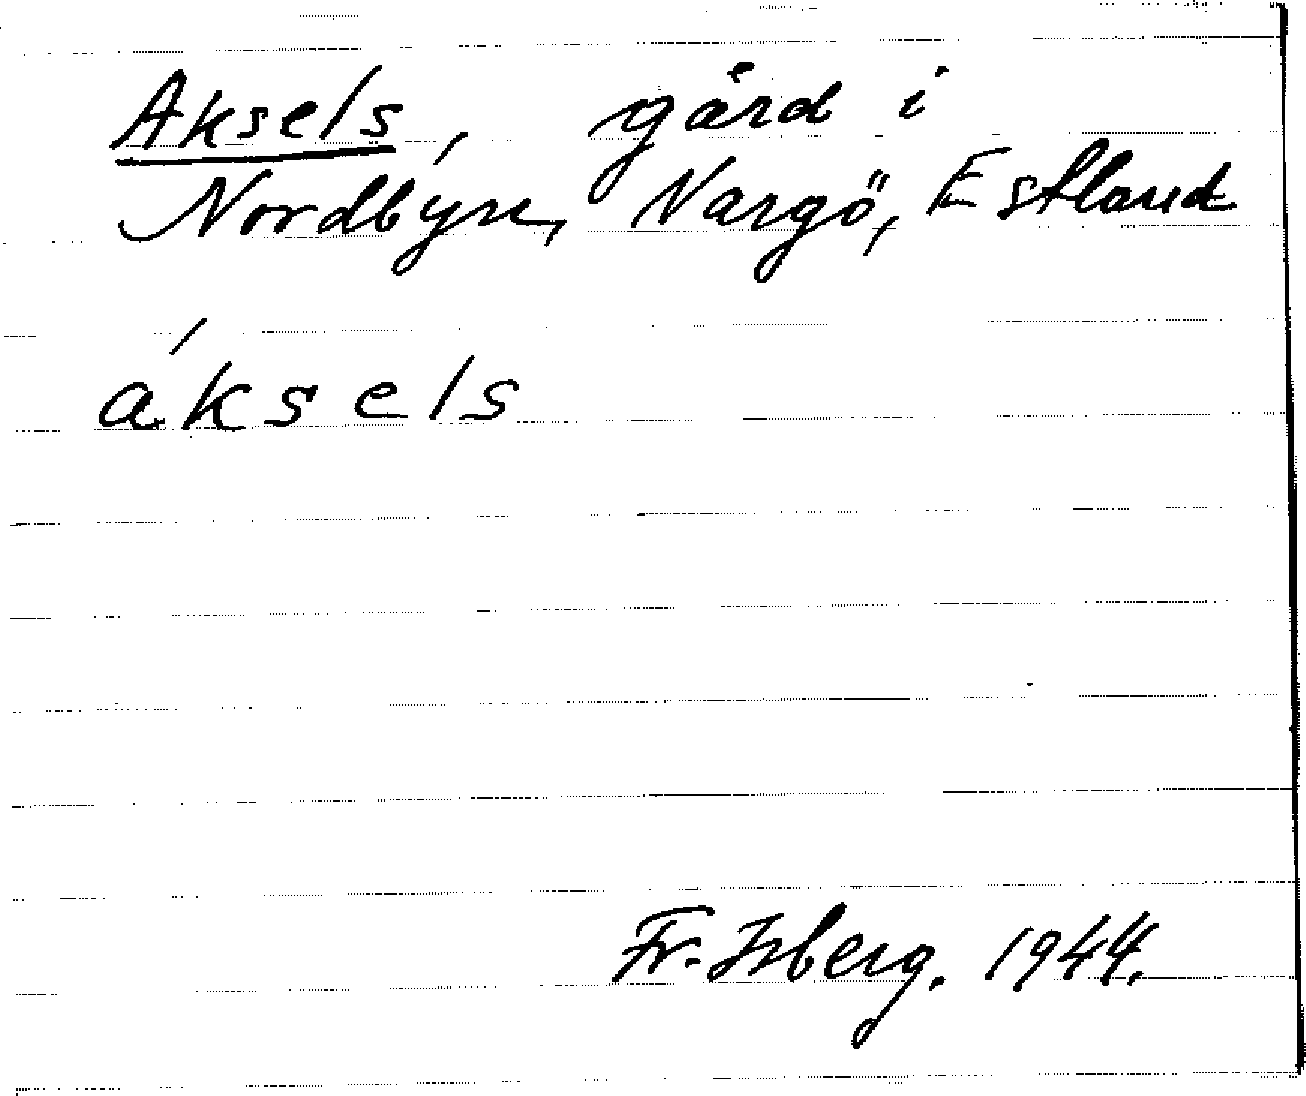 Aksels, gård i
Nordbýn, Nargö, Estland
áksels
Fr. Isberg. 1944.